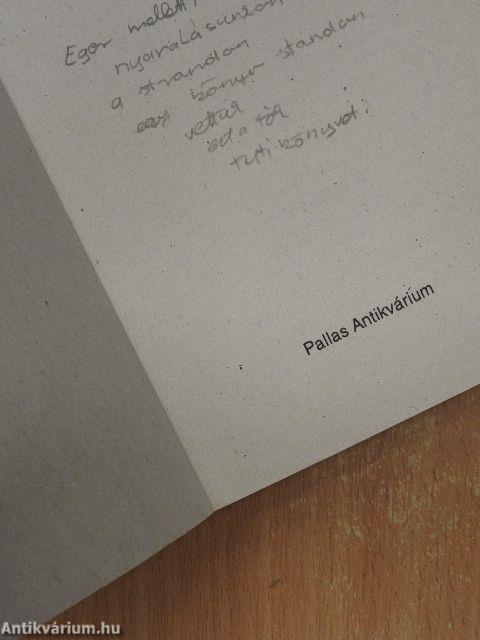 Eger mellett
nyaralásunkon
a strandon
könyv standon
vettük
ezt a tök
tuti könyvet.
Pallas Antikvárium
Antikvárium.hu